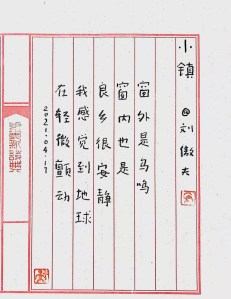 小镇 @刘傲夫
窗外是鸟鸣
窗内也是
良乡很安静
我感觉到地球
在轻微颤动
2021.04.17